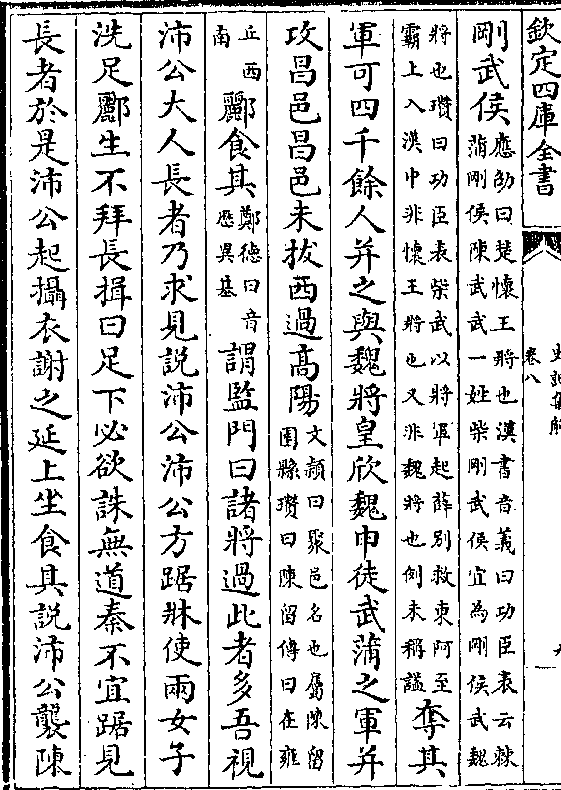 欽定四庫全書
史記集解
卷八
剛武侯應劭曰楚懷王將也漢書音義曰功臣表云棘
蒲剛侯陳武武一姓柴剛武侯宜為剛侯武魏
將也瓚曰功臣表柴武以將軍起薛別救東阿至
霸上入漢中非懷王將也又非魏將也例未稱謚奪其
軍可四千餘人并之與魏將皇欣魏申徒武蒲之軍并
攻昌邑昌邑未拔西過高陽文穎曰聚邑名也屬陳留
圉縣瓚曰陳留傳曰在雍
丘西
南酈食其鄭德曰音
歷異基謂監門曰諸將過此者多吾視
沛公大人長者乃求見説沛公沛公方踞牀使兩女子
洗足酈生不拜長揖曰足下必欲誅無道秦不宜踞見
長者於是沛公起攝衣謝之延上坐食其説沛公襲陳